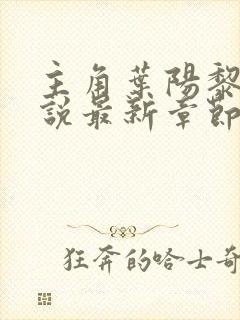 主角葉陽黎
說最新章節
狂奔的哈士奇